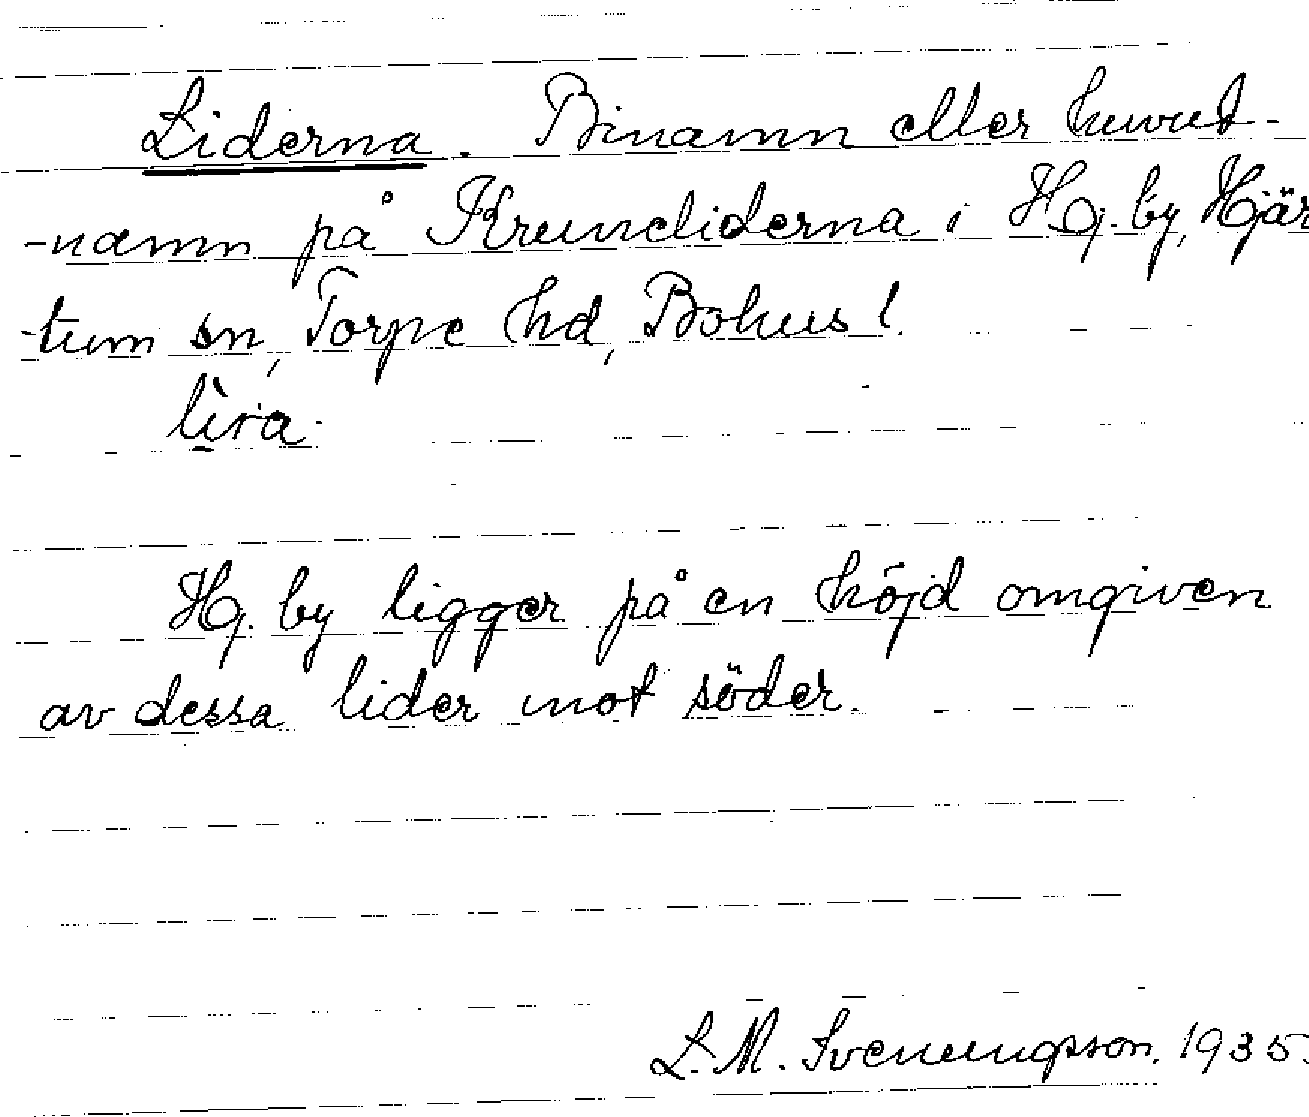 Liderna. Binamn eller huvud-
-namn på Kruneliderna i Hj. by, Hjär
-tum sn, Torpe hd, Bohus l.
lìra
Hj. by ligger på en höjd omgiven
av dessa lider mot söder.
L. M. Svenungsson. 1935.